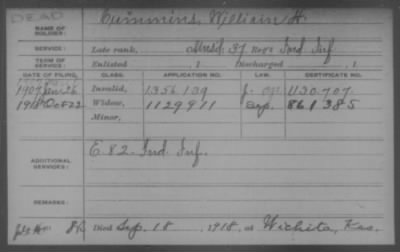 DEAD
NAME OF SOLDIER: Cummins, William H.
SERVICE: Late rank, Unasd. 37 Reg't Ind Inf
TERM OF SERVICE: Enlisted , 1 Discharged , 1
DATE OF FILING. CLASS. APPLICATION NO. LAW. CERTIFICATE NO.
1907 Jan 26 Invalid, 1356139 1130.707
1918 Oct 22 Widow, 1129911 861385
Minor,
ADDITIONAL SERVICES: E. 82. Ind. Inf.
REMARKS:
Died Sep. 18, 1918, at Wichita, Kas.